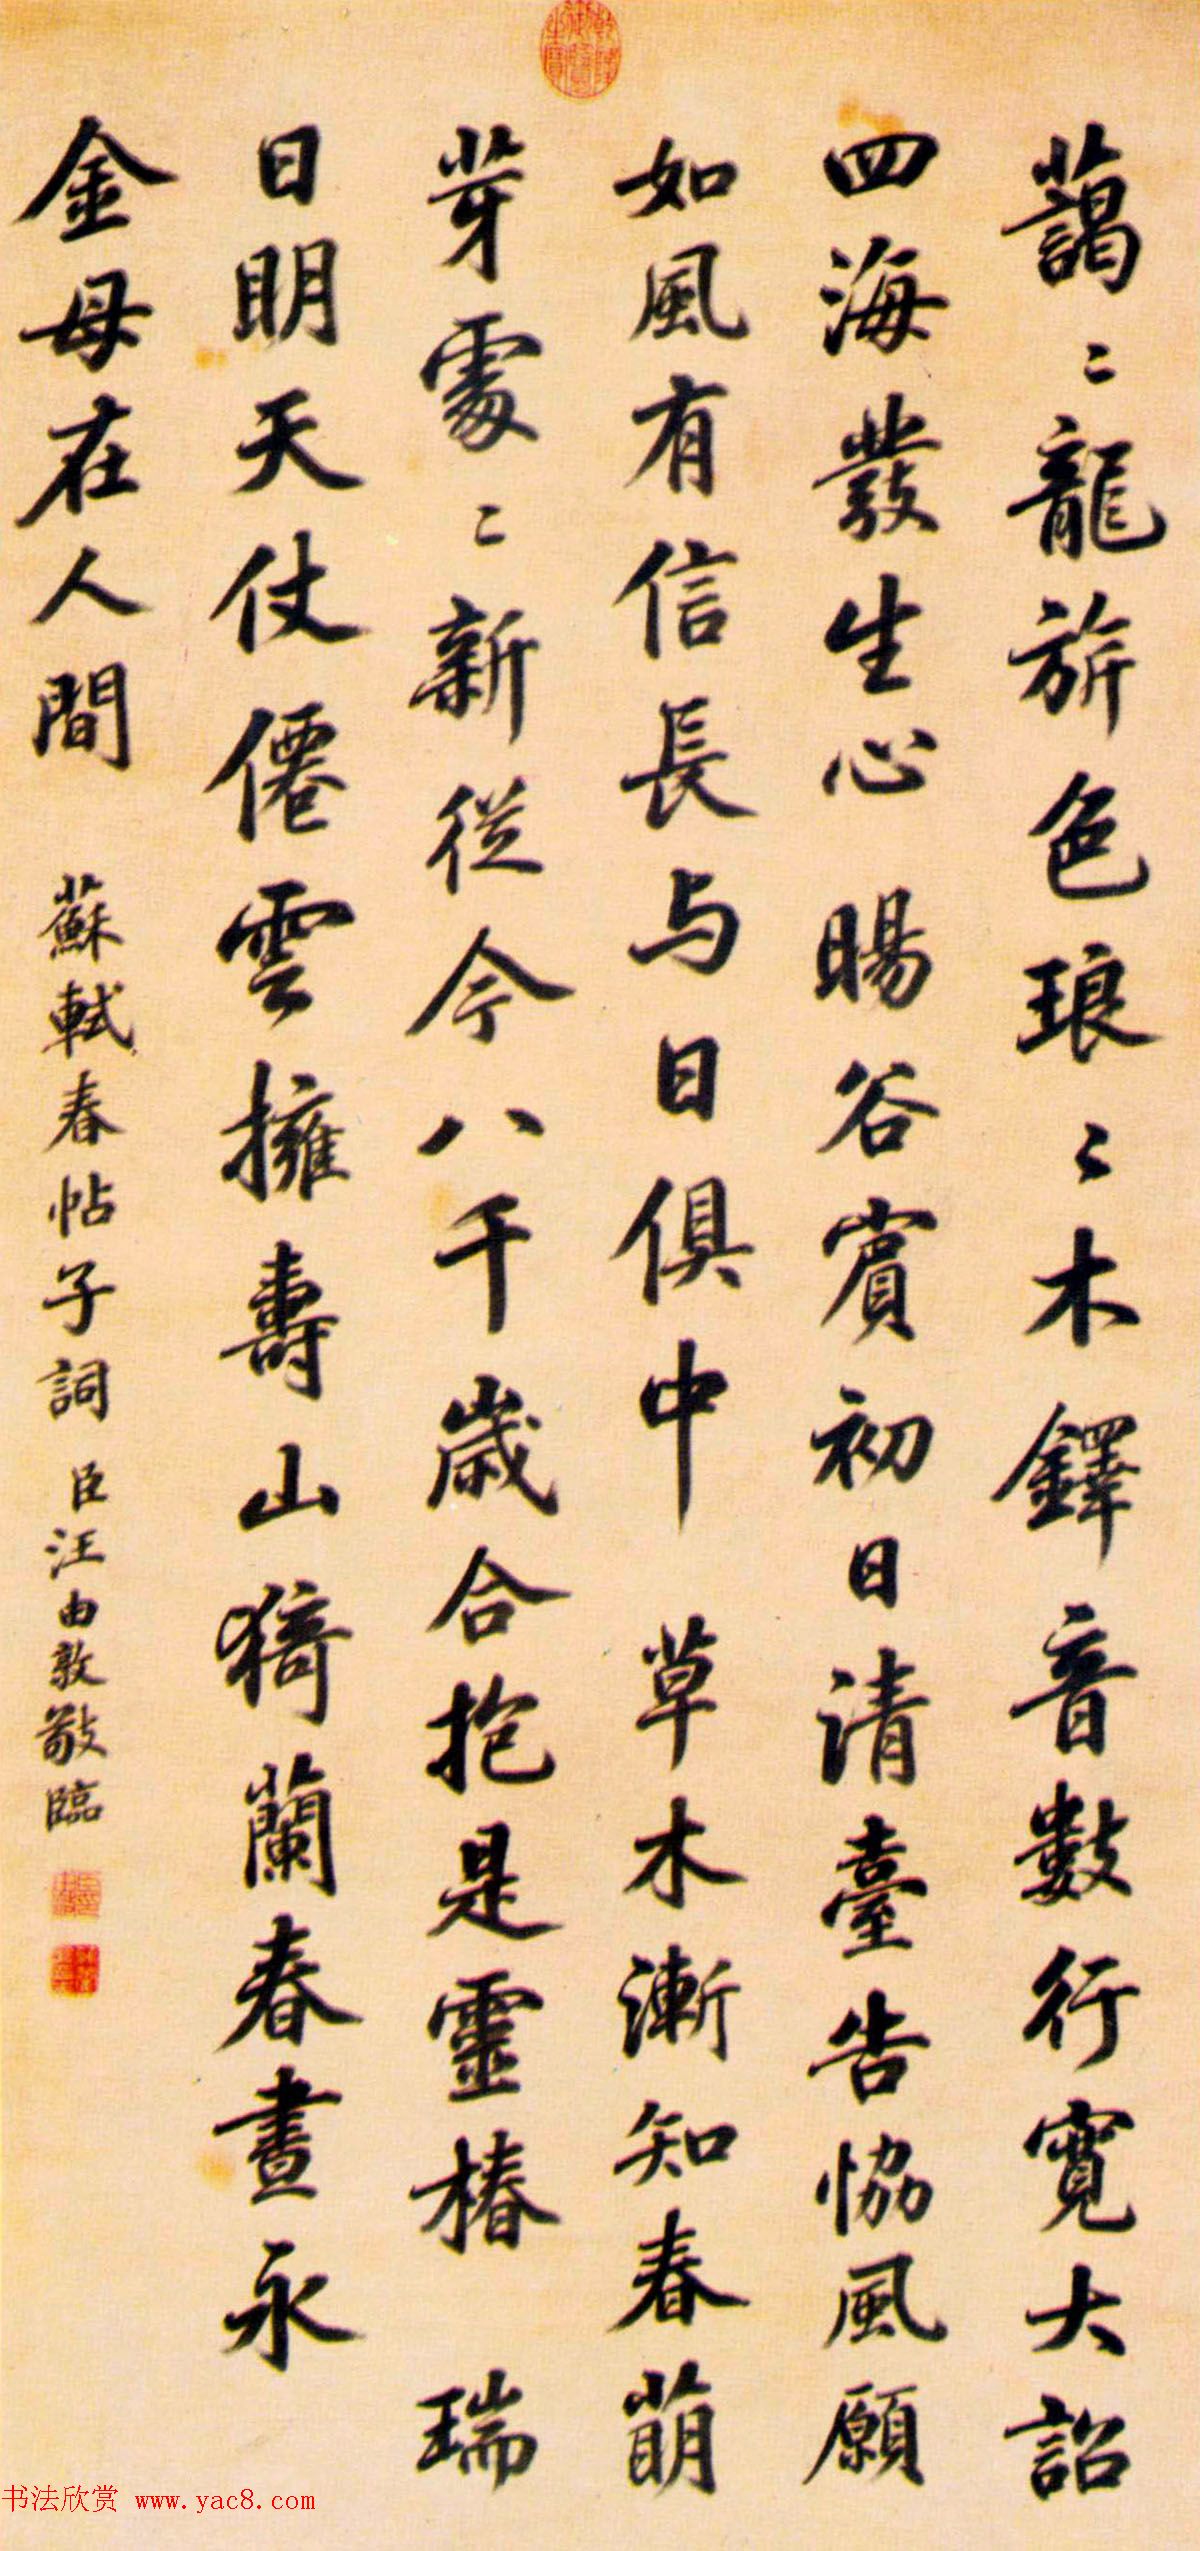 藹〻龍旂色琅〻木鐸音數行寬大詔
四海發生心暘谷賓初日清臺告恊風願
如風有信長与日俱中草木漸知春萌
芽處〻新從今八千歳合抱是靈椿瑞
日明天仗僊雲擁壽山猗蘭春晝永
金母在人間
蘇軾春帖子詞臣汪由敦敬臨
书法欣赏 www.yac8.com